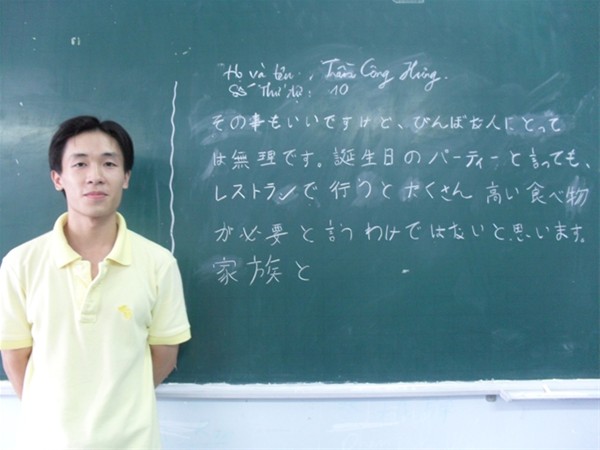 Họ và tên : Trần Công Hưng.
Số Thứ tự : 10
その事もいいですけど、びんぼな人にとって
は無理です。誕生日のパーティーと言っても、
レストランで行うとたくさん 高い食べ物
が必要と言うわけではないと思います。
家族と